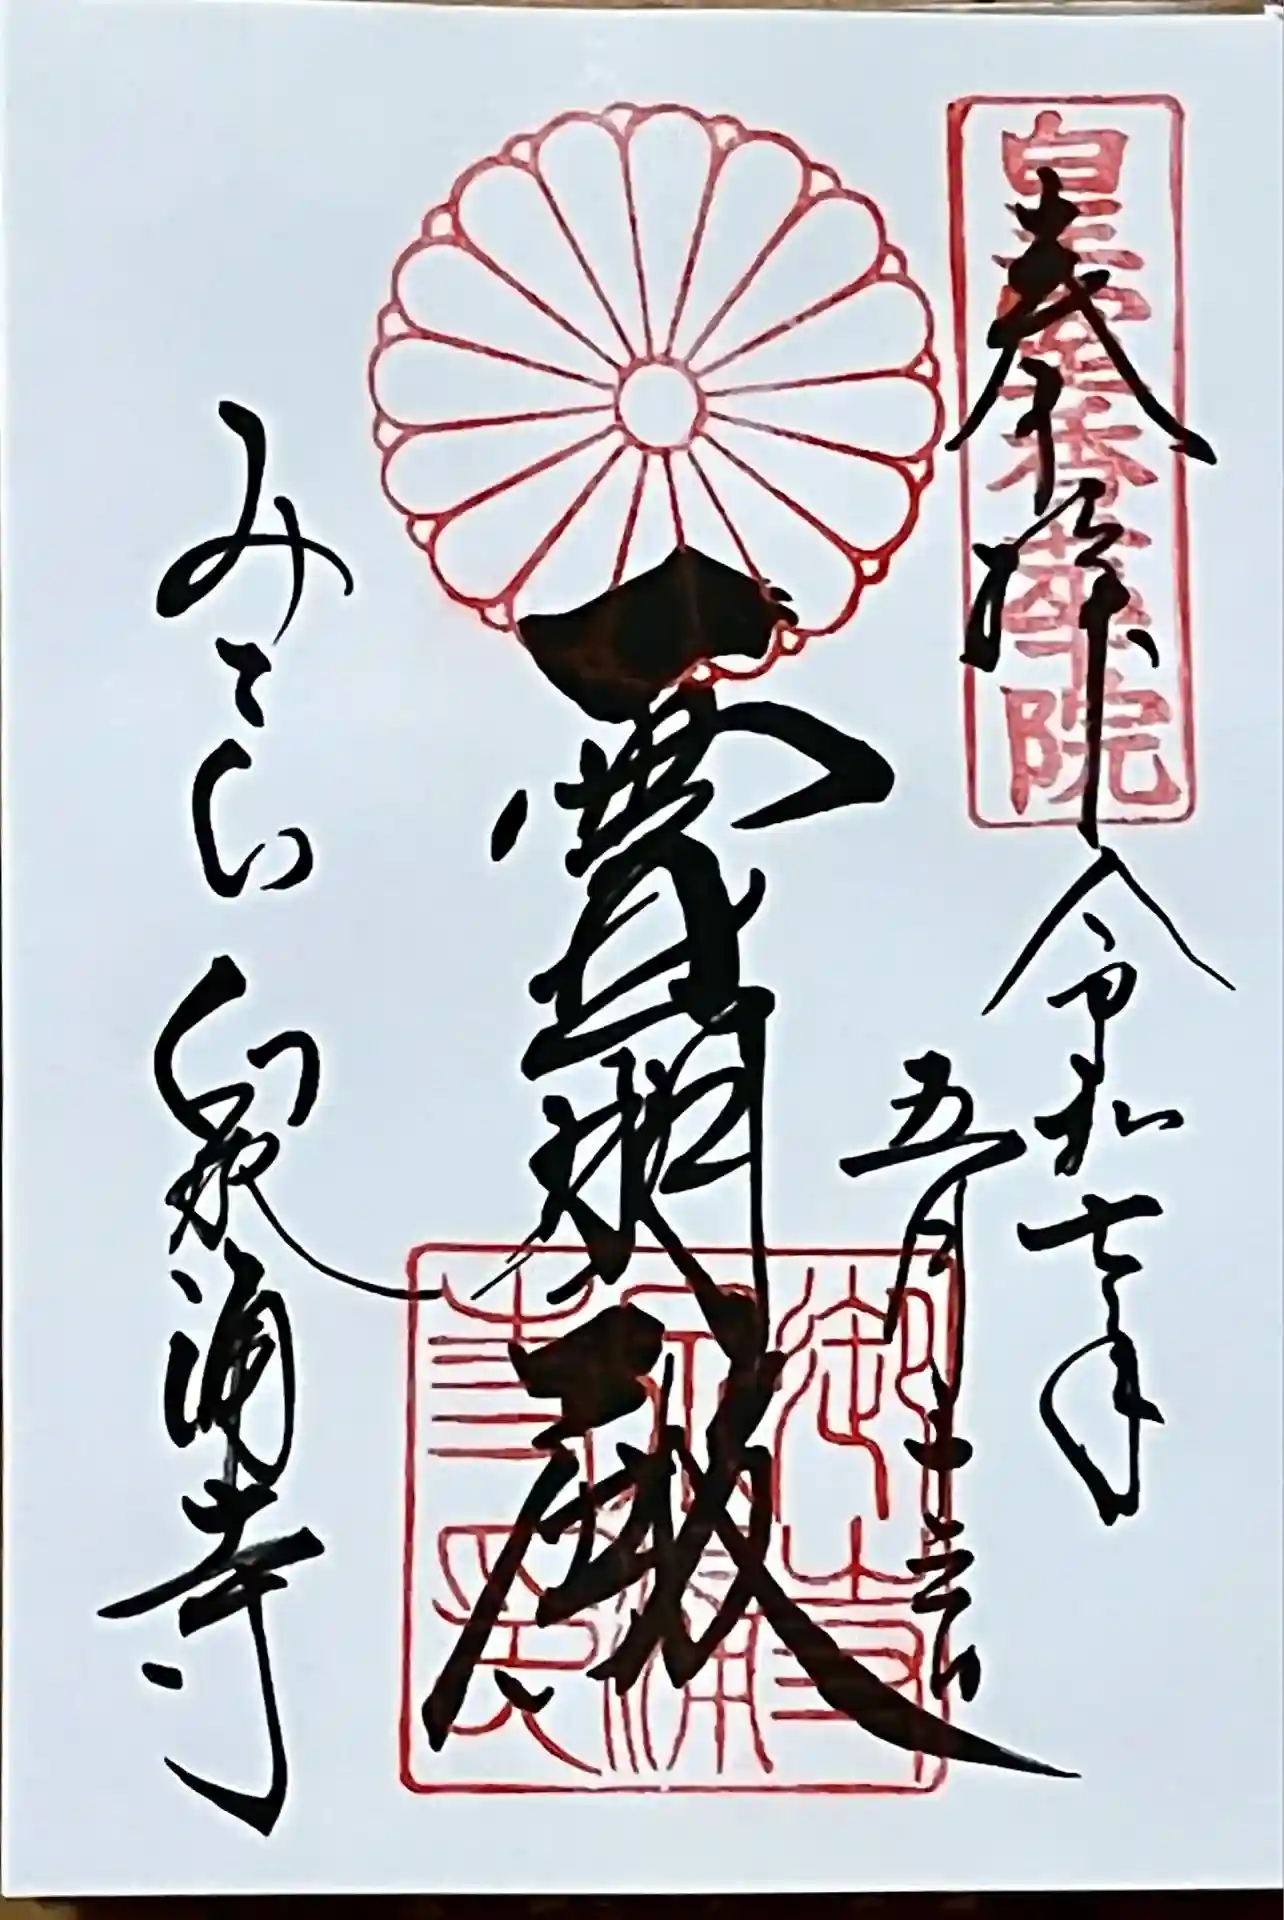 皇室香華院
奉拝
令和七年
五月
霊明殿
みてら
泉涌寺
御寺